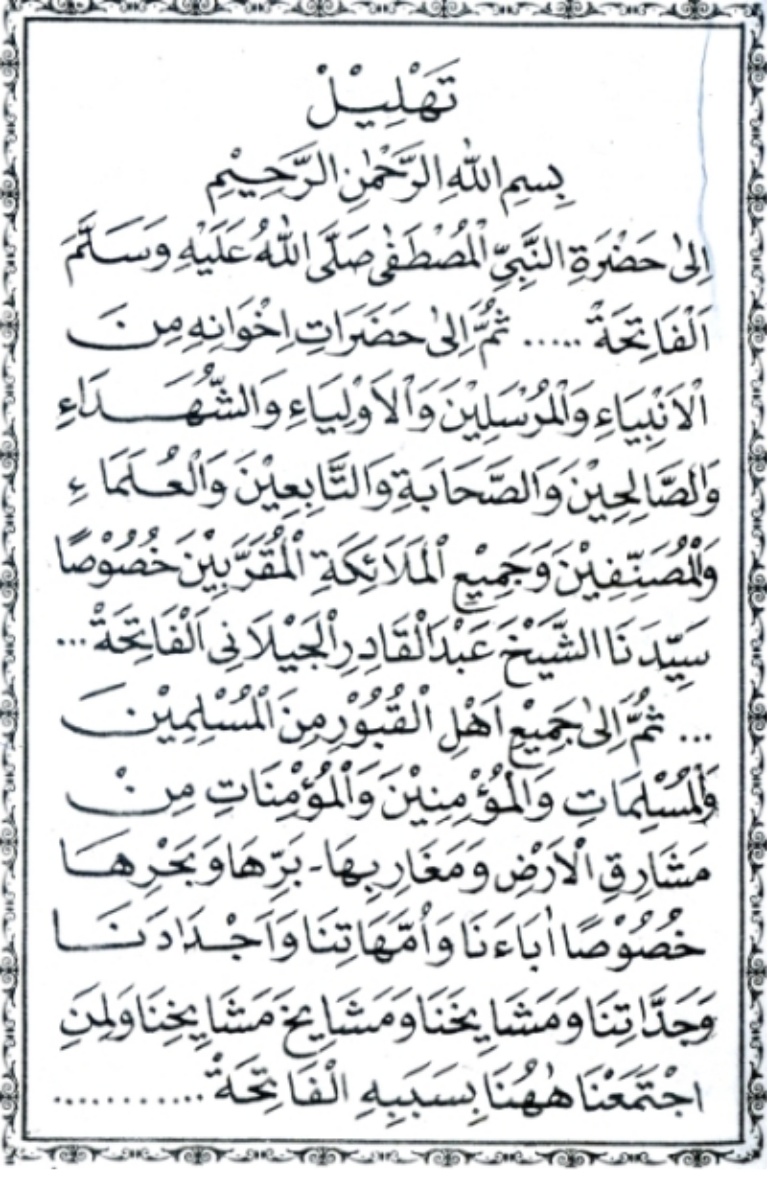 تَهْلِيْلْ
بِسْمِ اللهِ الرَّحْمٰنِ الرَّحِيْمِ
اِلىٰ حَضْرَةِ النَّبِيِّ الْمُصْطَفٰى صَلَّى اللهُ عَلَيْهِ وَسَلَّمَ
اَلْفَاتِحَةْ ..... ثُمَّ اِلىٰ حَضَرَاتِ اِخْوَانِهِ مِنَ
الْاَنْبِيَاءِ وَالْمُرْسَلِيْنَ وَالْاَوْلِيَاءِ وَالشُّهَدَاءِ
وَالصَّالِحِيْنَ وَالصَّحَابَةِ وَالتَّابِعِيْنَ وَالْعُلَمَاءِ
وَالْمُصَنِّفِيْنَ وَجَمِيْعِ الْمَلَائِكَةِ الْمُقَرَّبِيْنَ خُصُوْصًا
سَيِّدَنَا الشَّيْخَ عَبْدَالْقَادِرِ الْجَيْلَانِى اَلْفَاتِحَةْ ...
... ثُمَّ اِلىٰ جَمِيْعِ اَهْلِ الْقُبُوْرِ مِنَ الْمُسْلِمِيْنَ
وَالْمُسْلِمَاتِ وَالْمُؤْمِنِيْنَ وَالْمُؤْمِنَاتِ مِنْ
مَشَارِقِ الْاَرْضِ وَمَغَارِبِهَا - بَرِّهَا وَبَحْرِهَا
خُصُوْصًا اٰبَاءَنَا وَاُمَّهَاتِنَا وَاَجْدَادَنَا
وَجَدَّاتِنَا وَمَشَايِخَنَا وَمَشَايِخَ مَشَايِخِنَا وَلِمَنِ
اجْتَمَعْنَا هٰهُنَا بِسَبَبِهِ الْفَاتِحَةْ ............